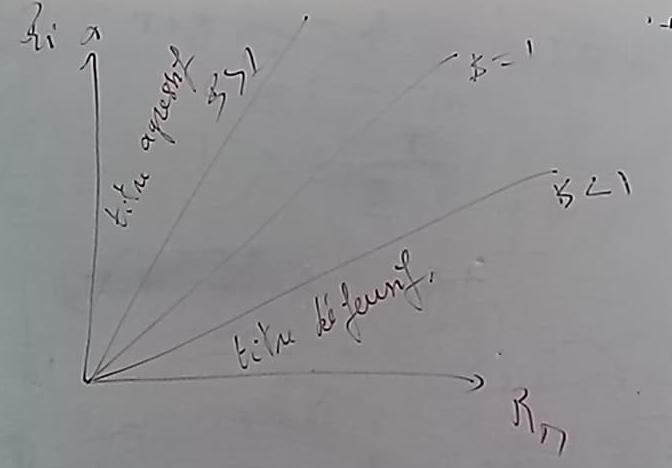 Ri
titre agressif
β>1
β=1
β<1
titre défensif.
RM